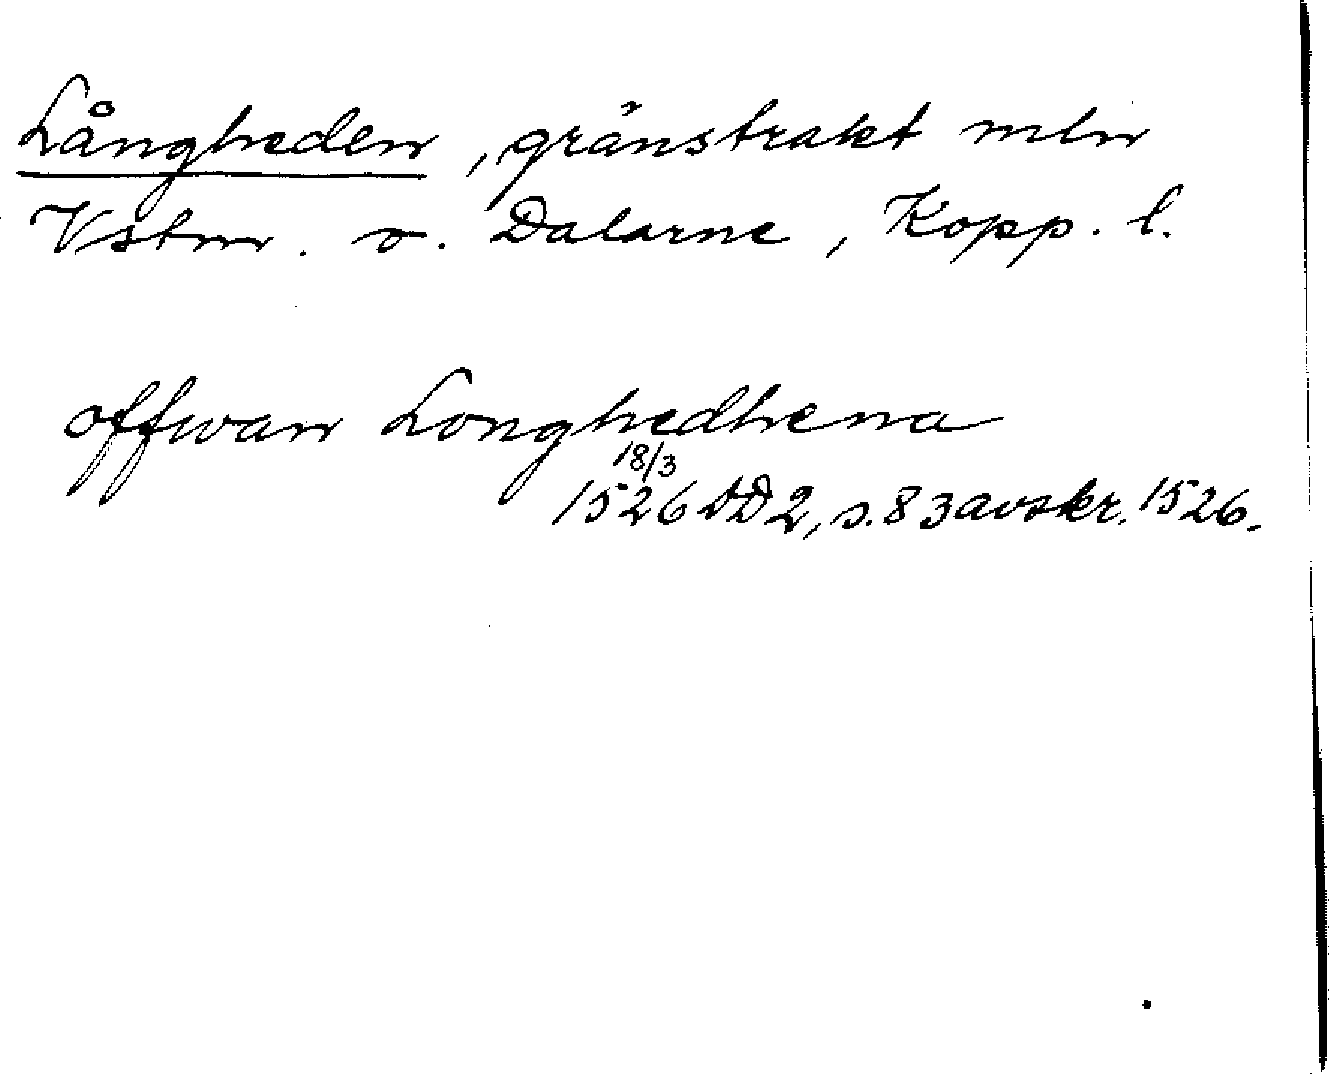 Långheden, gränstrakt mln
Vstm. o. Dalarne, Kopp. l.
offwan Longhedhena
18/3
1526 DD 2, s. 83 avskr. 1526.